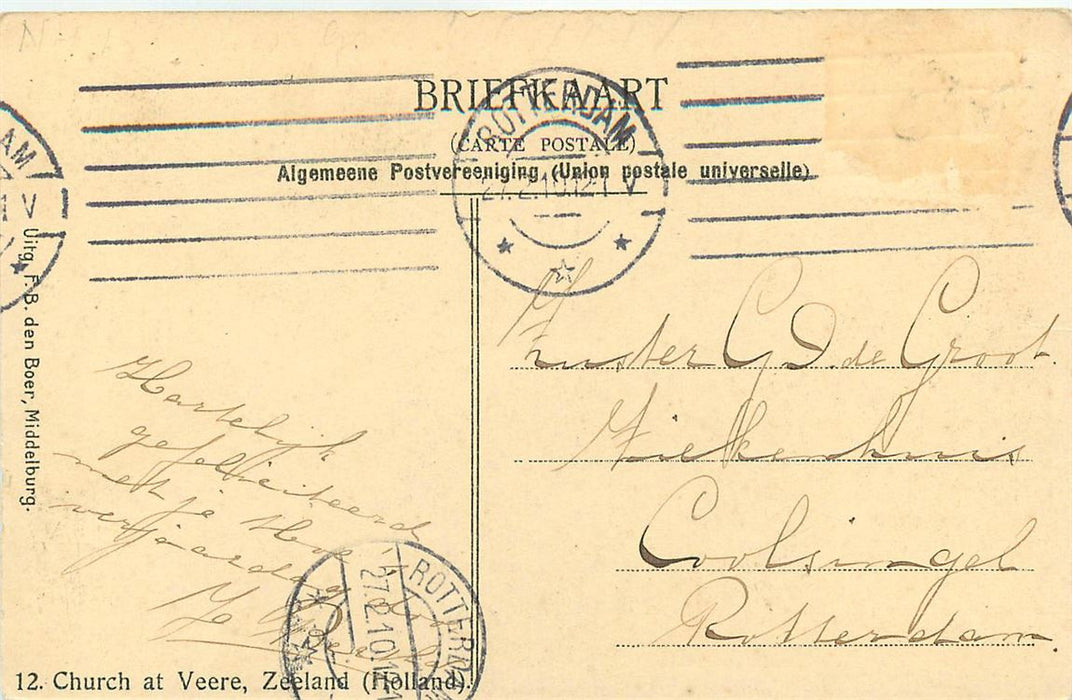 BRIEFKAART
(CARTE POSTALE)
Algemeene Postvereeniging (Union postale universelle)
ROTTERDAM
27.2.10.12-1 V
AM
1 V
Uitg. F. B. den Boer, Middelburg.
Zuster G. D. de Groot.
Ziekenhuis
Coolsingel
Rotterdam
Hartelijk
gefeliciteerd
met je
verjaardag
ROTTERDAM
27.2.10
12. Church at Veere, Zeeland (Holland).